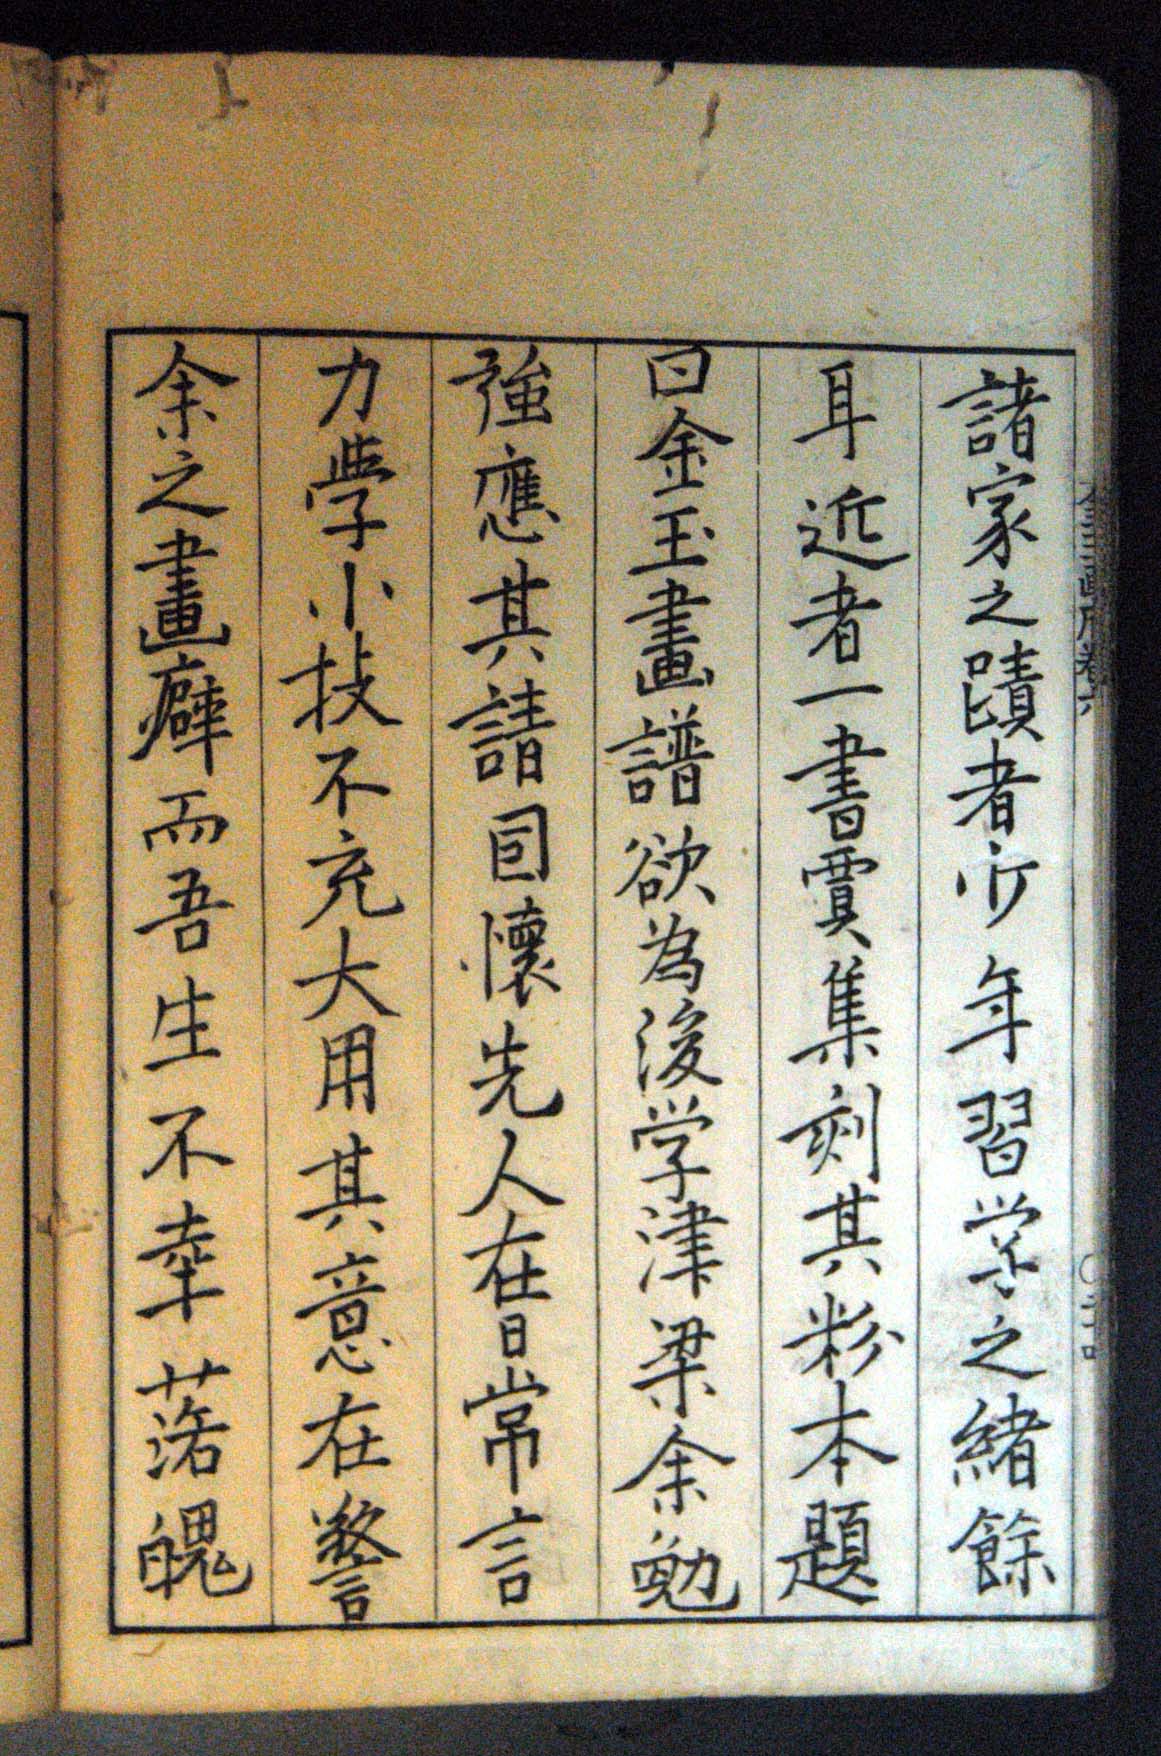 諸家之蹟者亦年習学之緒餘
耳近者一書賈集刻其粉本題
曰金玉畫譜欲為後学津梁余勉
強應其請因懷先人在日常言
力學小技不充大用其意在警
余之畫癖而吾生不幸落魄